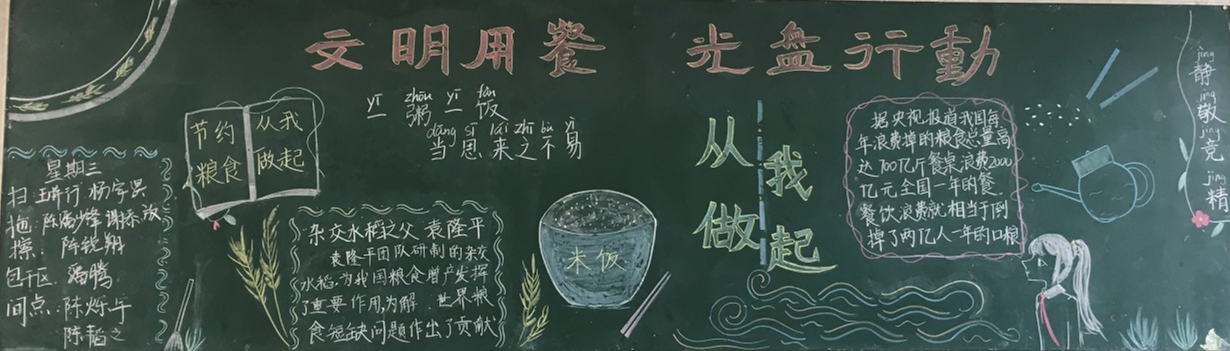 文明用餐 光盘行動
yī zhōu yī fàn
一粥一饭
dāng sī lái zhī bù yì
当思来之不易
节约
粮食
从我
做起
星期三
扫 王骅行 杨宇昊
拖: 陈 少锋 谢添
擦: 陈锐翔
包干区: 潘腾
间点: 陈烁午
陈韬之
杂交水稻之父 袁隆平
袁隆平团队研制的杂交
水稻,为我国粮食增产发挥
了重要作用,为解 世界粮
食短缺问题作出了贡献
米饭
从我
做起
据央视报道我国每
年浪费掉的粮食总量高
达700亿斤餐桌浪费2000
亿元全国一年的餐
餐饮浪费就相当于倒
掉了两亿人一年的口粮
jìng
静
jìng
敬
jìng
竞
jīng
精